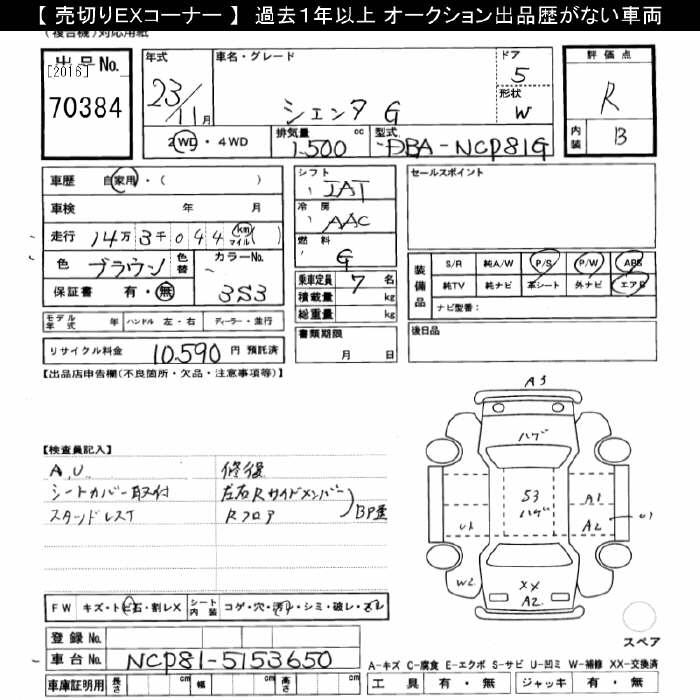 【 売切りEXコーナー 】 過去1年以上 オークション出品歴がない車両
(複合機)対応用紙
出品No.
[2016]
70384
年式
23/11月
車名・グレード
シエンタ G
ドア
5
形状
W
評価点
R
内装 B
2WD・4WD
排気量 cc
1,500
型式
DBA-NCP81G
車歴 自家用・( )
車検 年 月
走行 14万3千044 km マイル ( )
色 ブラウン 色替 カラーNo. 3S3
保証書 有・無
シフト
IAT
冷房
AAC
燃料
G
乗車定員 7 名
積載量 kg
総重量 kg
書類期限
月 日
セールスポイント
装備品
S/R 純A/W P/S P/W ABS
純TV 純ナビ 革シート 外ナビ エアB
ナビ型番:
後日品
モデル年式 年 ハンドル 左・右 ディーラー・並行
リサイクル料金 10,590 円 預託済
【出品店申告欄(不良箇所・欠品・注意事項等)】
【検査員記入】
A,U
シートカバー取付
スタッドレスT
修復
左右Rサイドメンバー
Rフロア
BP歪
A3
ハゲ
S3
ハゲ
A1
A2
U1
U1
W2
XX
A2.
スペア
FW キズ・トビ石・割レX シート内装 コゲ・穴・汚レ・シミ・破レ・スレ
登録No.
車台No. NCP81-5153650
車庫証明用 長さ cm 幅 cm 高さ cm
A-キズ C-腐食 E-エクボ S-サビ U-凹ミ W-補修 XX-交換済
工具 有・無 ジャッキ 有・無